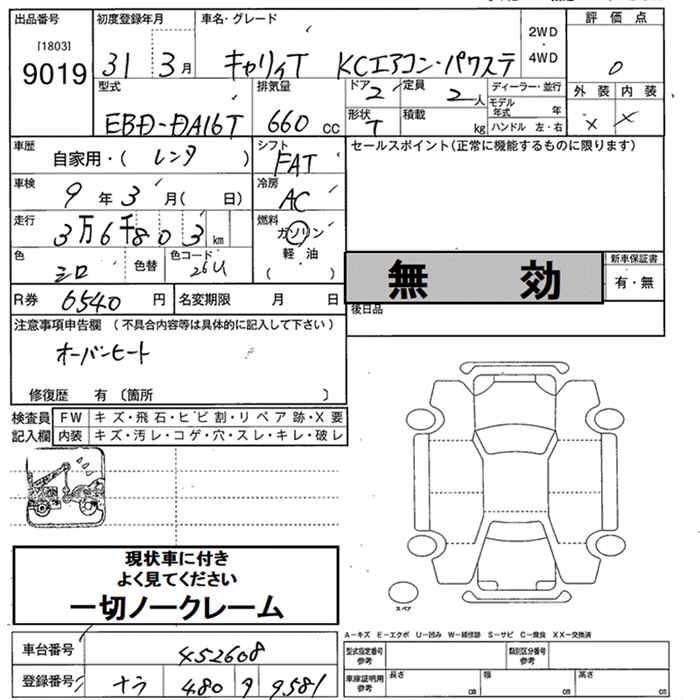 出品番号 初度登録年月 車名・グレード 評価点
[1803]
9019 31 3月 キャリイT KCエアコン・パワステ 2WD 4WD 0
型式 排気量 ドア 2 定員 2人 ディーラー・並行 外装 内装
EBD-DA16T 660cc 形状 T 積載 kg モデル年式 年 × ×
ハンドル 左・右
車歴 自家用・( レンタ ) シフト FAT セールスポイント(正常に機能するものに限ります)
車検 9年3月( 日) 冷房 AC
走行 3万6千803km 燃料 ガソリン
軽油
( ・ )
色 シロ 色替 色コード 26U
無効 新車保証書
有・無
R券 6540円 名変期限 月 日 後日品
注意事項申告欄 (不具合内容等は具体的に記入して下さい)
オーバーヒート
修復歴 有 〔箇所 〕
検査員 FW キズ・飛石・ヒビ割・リペア跡・X要
記入欄 内装 キズ・汚レ・コゲ・穴・スレ・キレ・破レ
現状車に付き
よく見てください
一切ノークレーム
スペア
A-キズ E-エクボ U-凹み W-補修跡 S-サビ C-腐食 XX-交換済
車台番号 452608 型式指定番号 参考 類別区分番号 参考
登録番号 ナラ 480 タ 9581 車庫証明用 参考 長さ cm 幅 cm 高さ cm